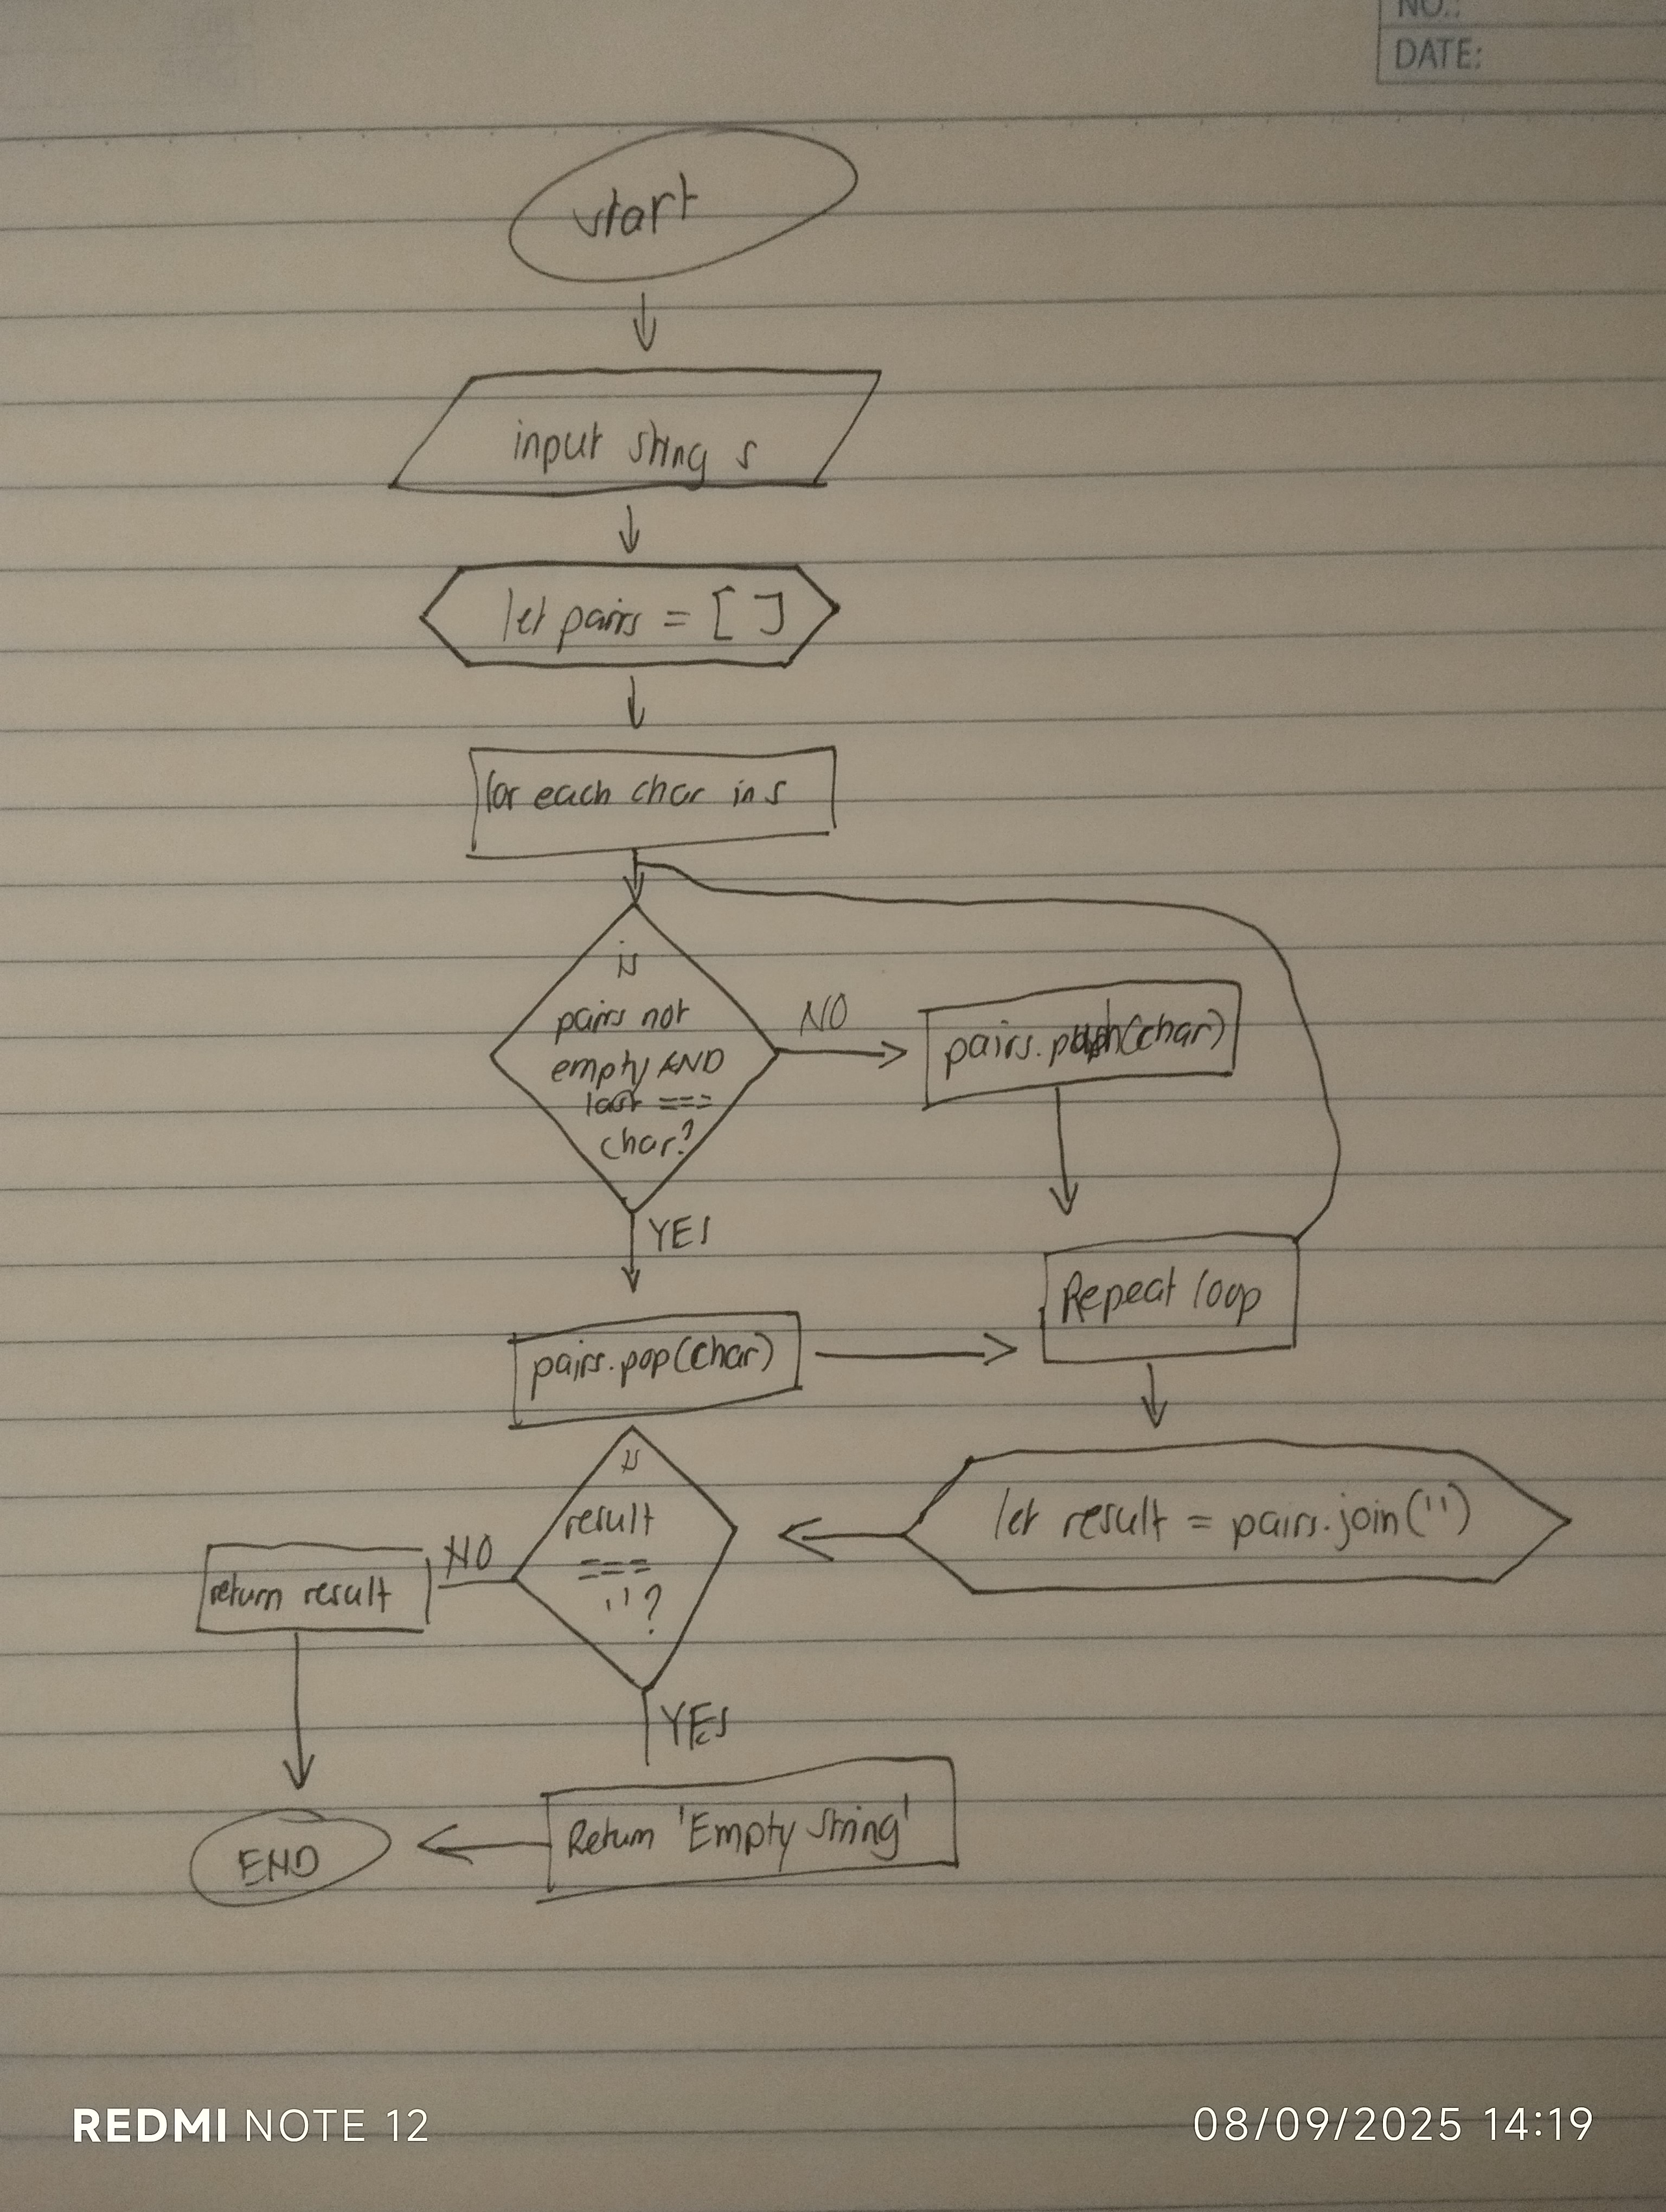 NO.:
DATE:
start
input string s
let pairs = [ ]
for each char in s
is
pairs not
empty AND
last ===
char?
NO
pairs.push(char)
YES
Repeat loop
pairs.pop(char)
is
result
===
''?
let result = pairs.join('')
NO
return result
YES
Return 'Empty String'
END
REDMI NOTE 12
08/09/2025 14:19